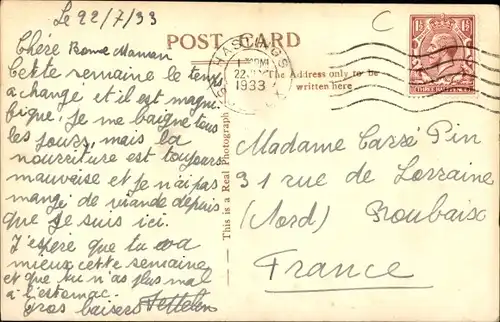 Le 22/7/33
Chère Bonne Maman
Cette semaine le temps
a change et il est magni
fique, je me baigne tous
les jours, mais la
nourriture est toujours
mauvaise et je n'ai pas
mangé de viande depuis
que je suis ici.
J'espère que tu va
mieux cette semaine
et que tu n'as plus mal
à l'estomac.
Gros baisers
POST CARD
The Address only to be
written here
This is a Real Photograph
HASTINGS
22
1933
THREE HALFPENCE
C
Madame Carré Pin
31 rue de Lorraine
(Nord) Roubaix
France